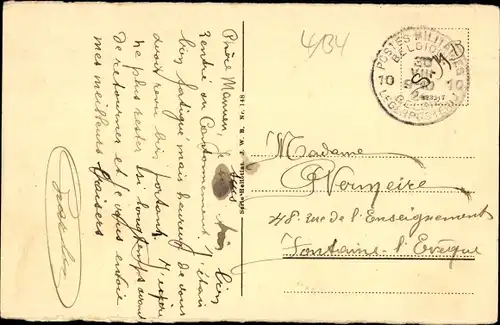 4/34
POSTES MILITAIRES
BELGIQUE
10 10
S.M.
Chère Maman, je suis bien
rentré au Cantonnement, j'étais
bien fatigué mais heureux de vous
avoir revu bien portant. J'espère
ne plus rester si longtemps avant
De retourner et je vous envoie
mes meilleurs Baisers
Madame
Vermeire
48. rue de l'Enseignement
Fontaine-l'Evêque